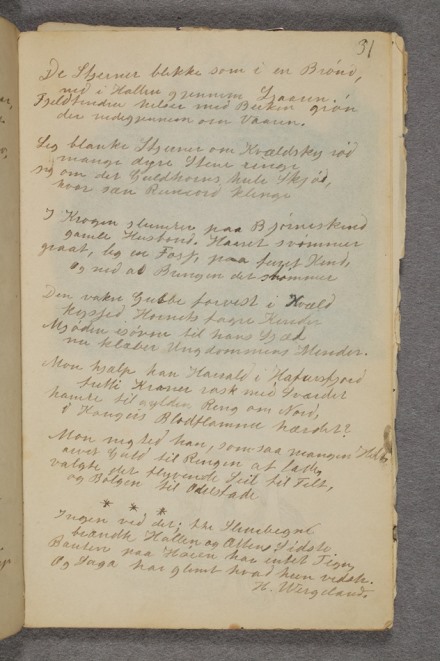 31
De Stjerner blikke som i en Brønd,
ned i Hallen gjennem Ljaaren.
Fjeldtinden hilser med Birken grøn
der nedigjennem om Vaaren.
Sig blanke Stjerner om Kvældsky rød
mange dyre Stene ringe
sig om det Guldhorns hule Skjød,
hvor san Runeord klinge
I Krogen slumrer paa Bjørneskind
gamle Husbond. Haaret svømmer
graat, lig en Fos, paa furet Kind,
og ned ad Bringen det strømmer
Den vakre Gubbe forvist i Kvæld
kyssed Hornets fagre Kinder
Mjøden
nu klæber Ungdommens Minder.
Mon hjalp han Harald i Hafursfjord
fulli Kroner rask med Sværdet
hamre til gylden Ring om Nord,
i Kongers Blodflamme hærdet?
Mon nigted han, som saa mangen Helt,
arvet Guld til Ringen at lade,
valgte det flyvende Seil til Telt,
og Bølgen til Odelsstade
* * *
Ingen ved det; thi Stenbegul
brændte Hallen og Atten Sidste
Bauten paa Høien har intet Tegn,
Og Saga har glemt hvad hun vidste.
H. Wergeland.